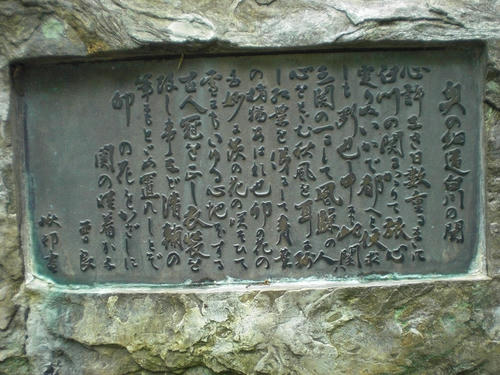 奥の細道白川の関
心許なき日数重るまゝに
白川の関にかゝりて旅心
定りぬいかで都へと便求
しも断也中にも此関は
三関の一にして風騒の人
心をとゞむ秋風を耳に残
し紅葉を俤にして青葉
の梢猶あはれ也卯の花の
白妙に茨の花の咲そひて
雪にもこゆる心地ぞする
古人冠を正し衣装を
改し事など清輔の
筆にもとゞめ置れしとぞ
卯の花をかざしに
関の晴着かな
曽良